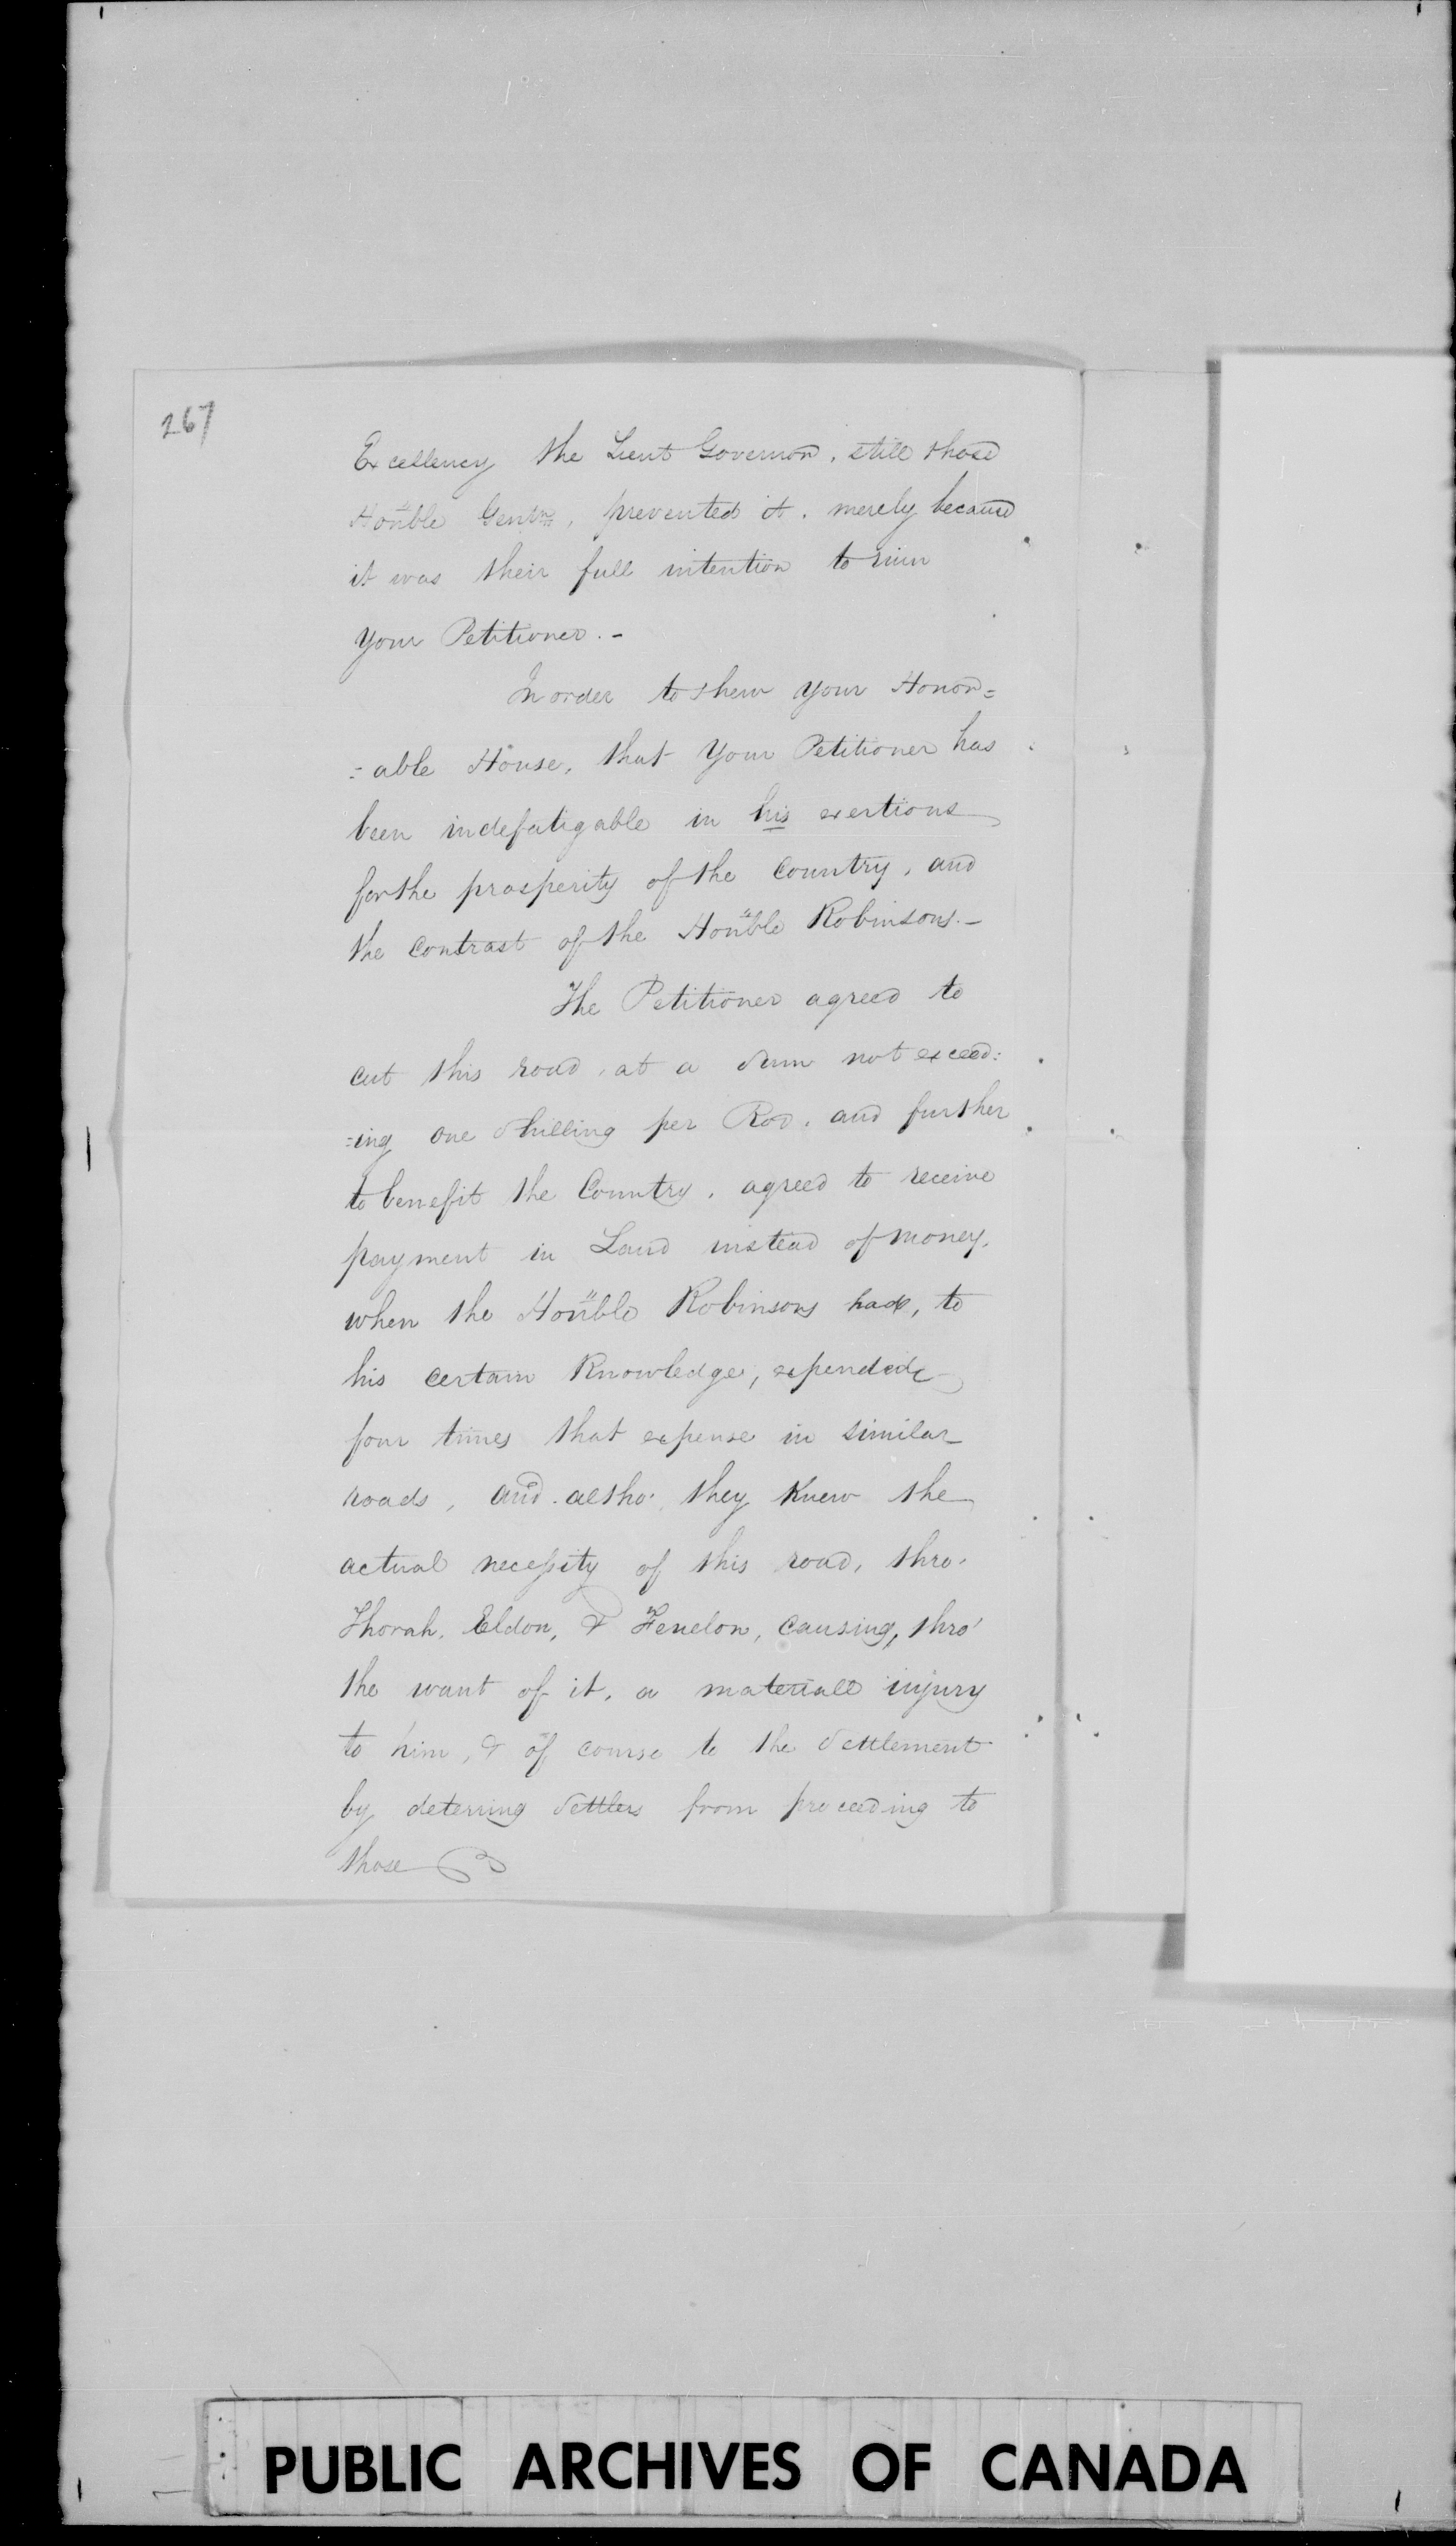 267
Excellency the Lieut Governor, still those
Honble Gentn, prevented it, merely because
it was their full intention to ruin
your Petitioner. -
In order to shew your Honor=
=able House, that your Petitioner has
been indefatigable in his exertions
for the prosperity of the Country, and
the contrast of the Honble Robinsons. -
The Petitioner agreed to
cut this road, at a Sum not exceed=
=ing one Shilling per Rod, and further
to benefit the Country, agreed to receive
payment in Land instead of money,
when the Honble Robinsons had, to
his certain Knowledge, expended
four times that expense in similar
roads, and altho' they Knew the
actual necessity of this road, thro'
Thorah, Eldon, & Fenelon, causing, thro'
the want of it, a materiall injury
to him, & of course to the Settlement
by deterring Settlers from proceeding to
those
PUBLIC ARCHIVES OF CANADA